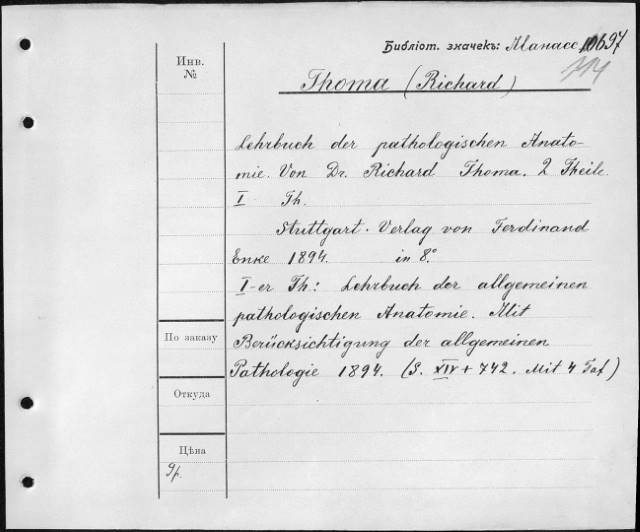 Библіот. значекъ: Манасс. 10697
714
Инв.
№
Thoma (Richard)
Lehrbuch der pathologischen Anato-
mie. Von Dr. Richard Thoma. 2 Theile.
I Th.
Stuttgart. Verlag von Ferdinand
Enke 1894. in 8°
I-er Th.: Lehrbuch der allgemeinen
pathologischen Anatomie. Mit
Berücksichtigung der allgemeinen
Pathologie 1894. (S. XIV + 742. Mit 4 Taf)
По заказу
Откуда
Цѣна
9р.